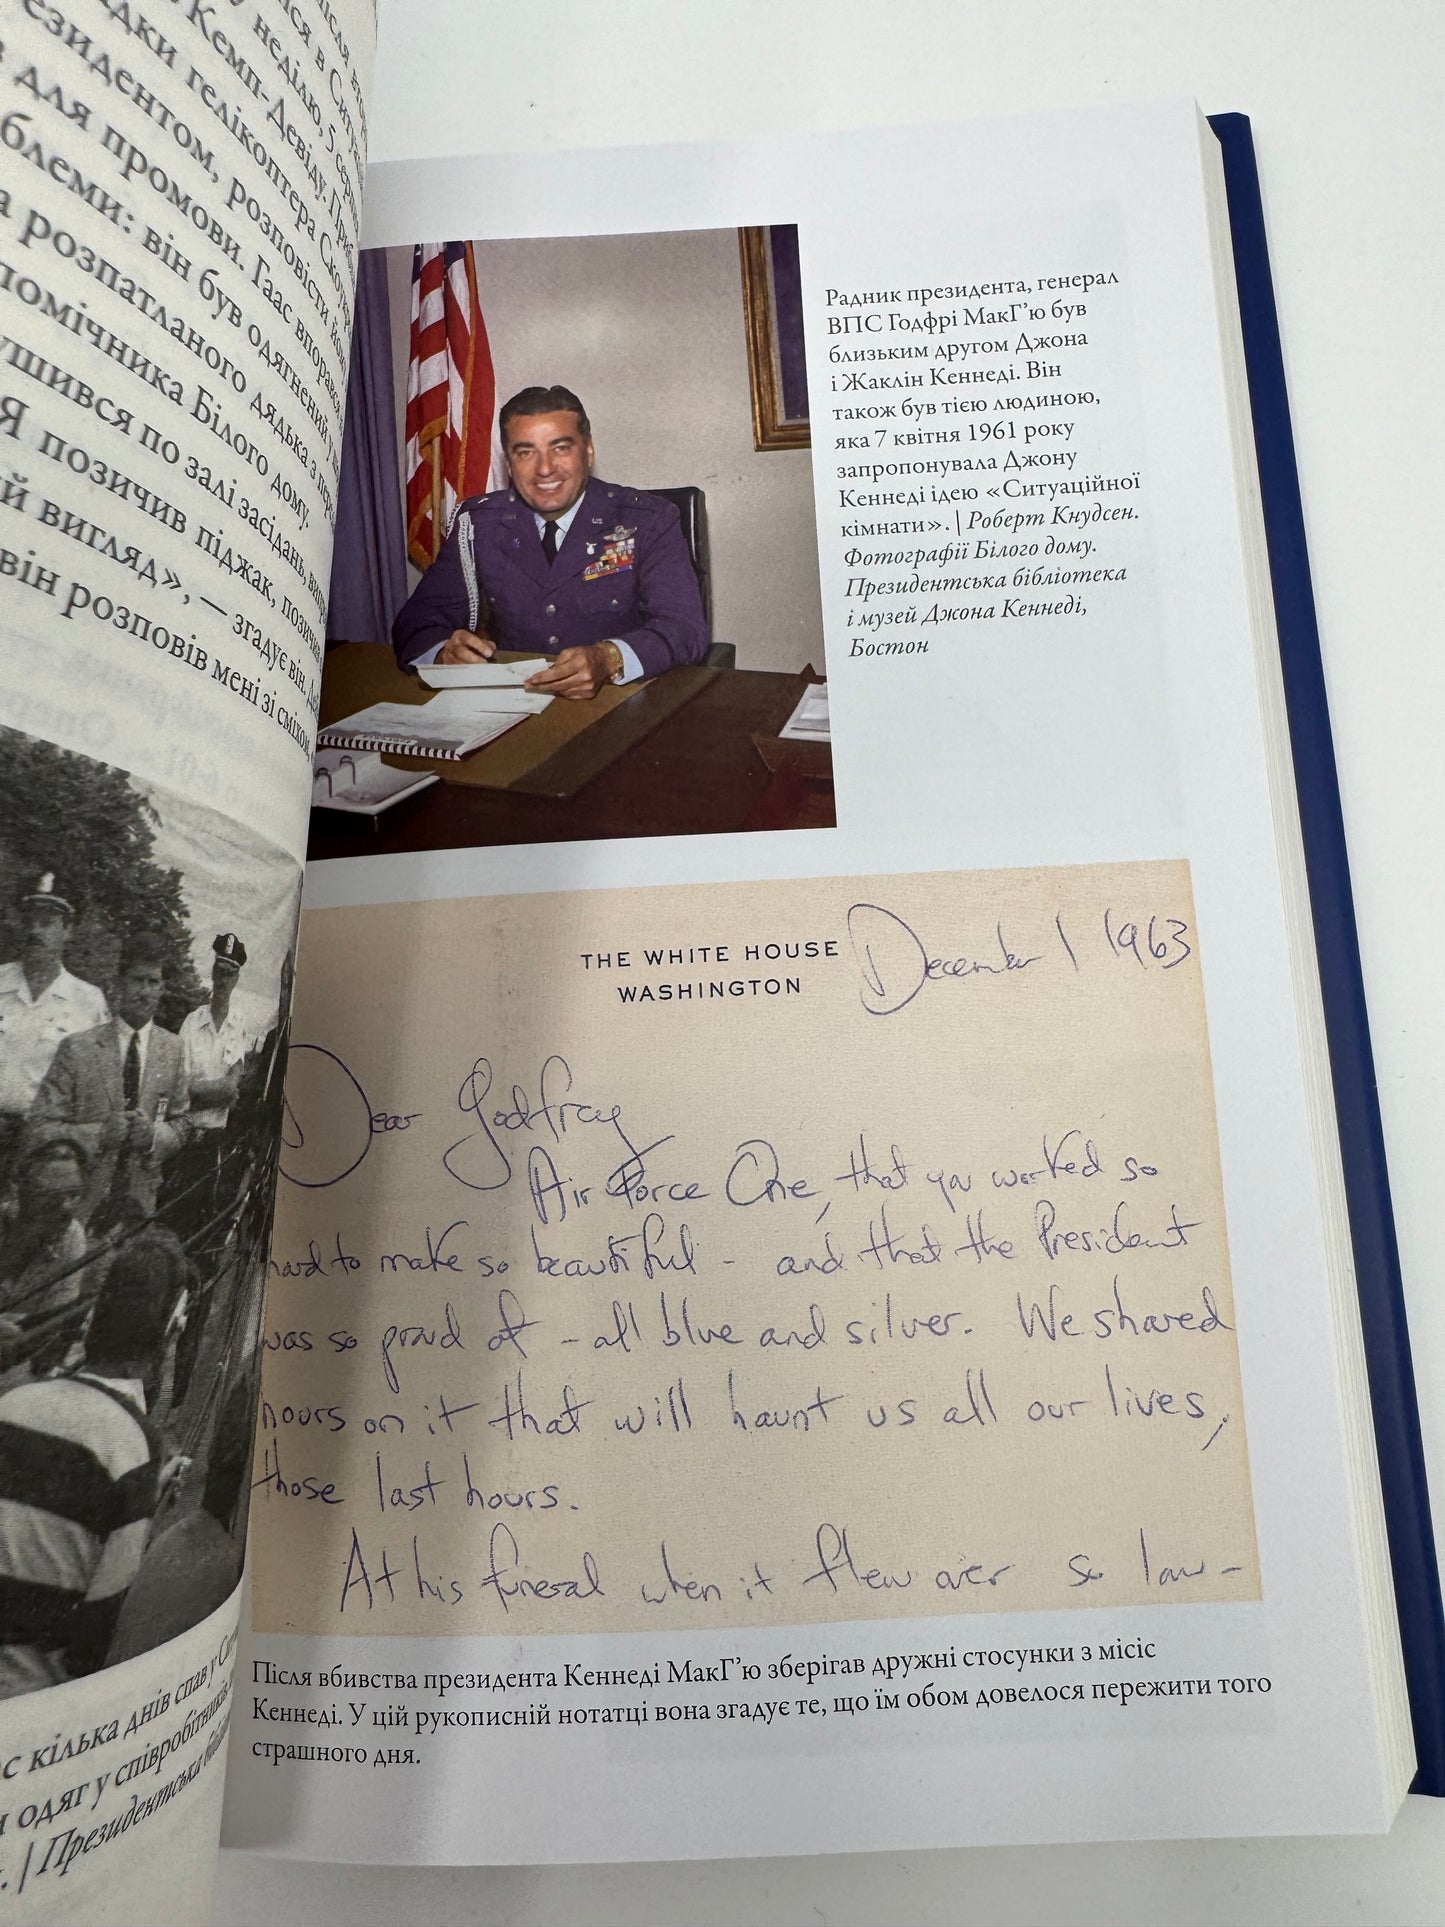 після
в Ситуа
неділю, 5 серпня
Кемп-Девіду.
гелікоптера
президентом, розповісти йому
для промови. Гаас впорався
блеми: він був одягнений у
розпатланого дядька з
помічника Білого дому.
по залі засідань,
Я позичив піджак, позичив
й вигляд», — згадує він.
він розповів мені зі сміхом,
с кілька днів спав у
одяг у співробітників
. | Президентська
Радник президента, генерал
ВПС Годфрі МакГ’ю був
близьким другом Джона
і Жаклін Кеннеді. Він
також був тією людиною,
яка 7 квітня 1961 року
запропонувала Джону
Кеннеді ідею «Ситуаційної
кімнати». | Роберт Кнудсен.
Фотографії Білого дому.
Президентська бібліотека
і музей Джона Кеннеді,
Бостон
THE WHITE HOUSE
WASHINGTON
December 1 1963
Dear Godfrey
Air Force One, that you worked so
hard to make so beautiful - and that the President
was so proud of - all blue and silver. We shared
hours on it that will haunt us all our lives,
those last hours.
At his funeral when it flew over so low -
Після вбивства президента Кеннеді МакГ’ю зберігав дружні стосунки з місіс
Кеннеді. У цій рукописній нотатці вона згадує те, що їм обом довелося пережити того
страшного дня.